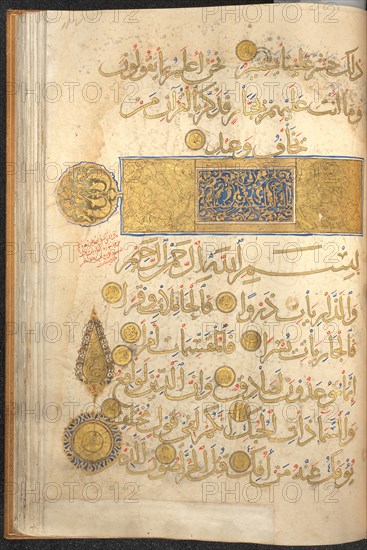 ذلك حشر علينا يسير نحن أعلم بما يقولون
وما أنت عليهم بجبار فذكر بالقرآن من
يخاف وعيد
بسم الله الرحمن الرحيم
والذاريات ذروا فالحاملات وقرا
فالجاريات يسرا فالمقسمات أمرا
إنما توعدون لصادق وإن الدين لواقع
والسماء ذات الحبك إنكم لفي قول مختلف
يؤفك عنه من أفك قتل الخراصون الذين
PHOTO12